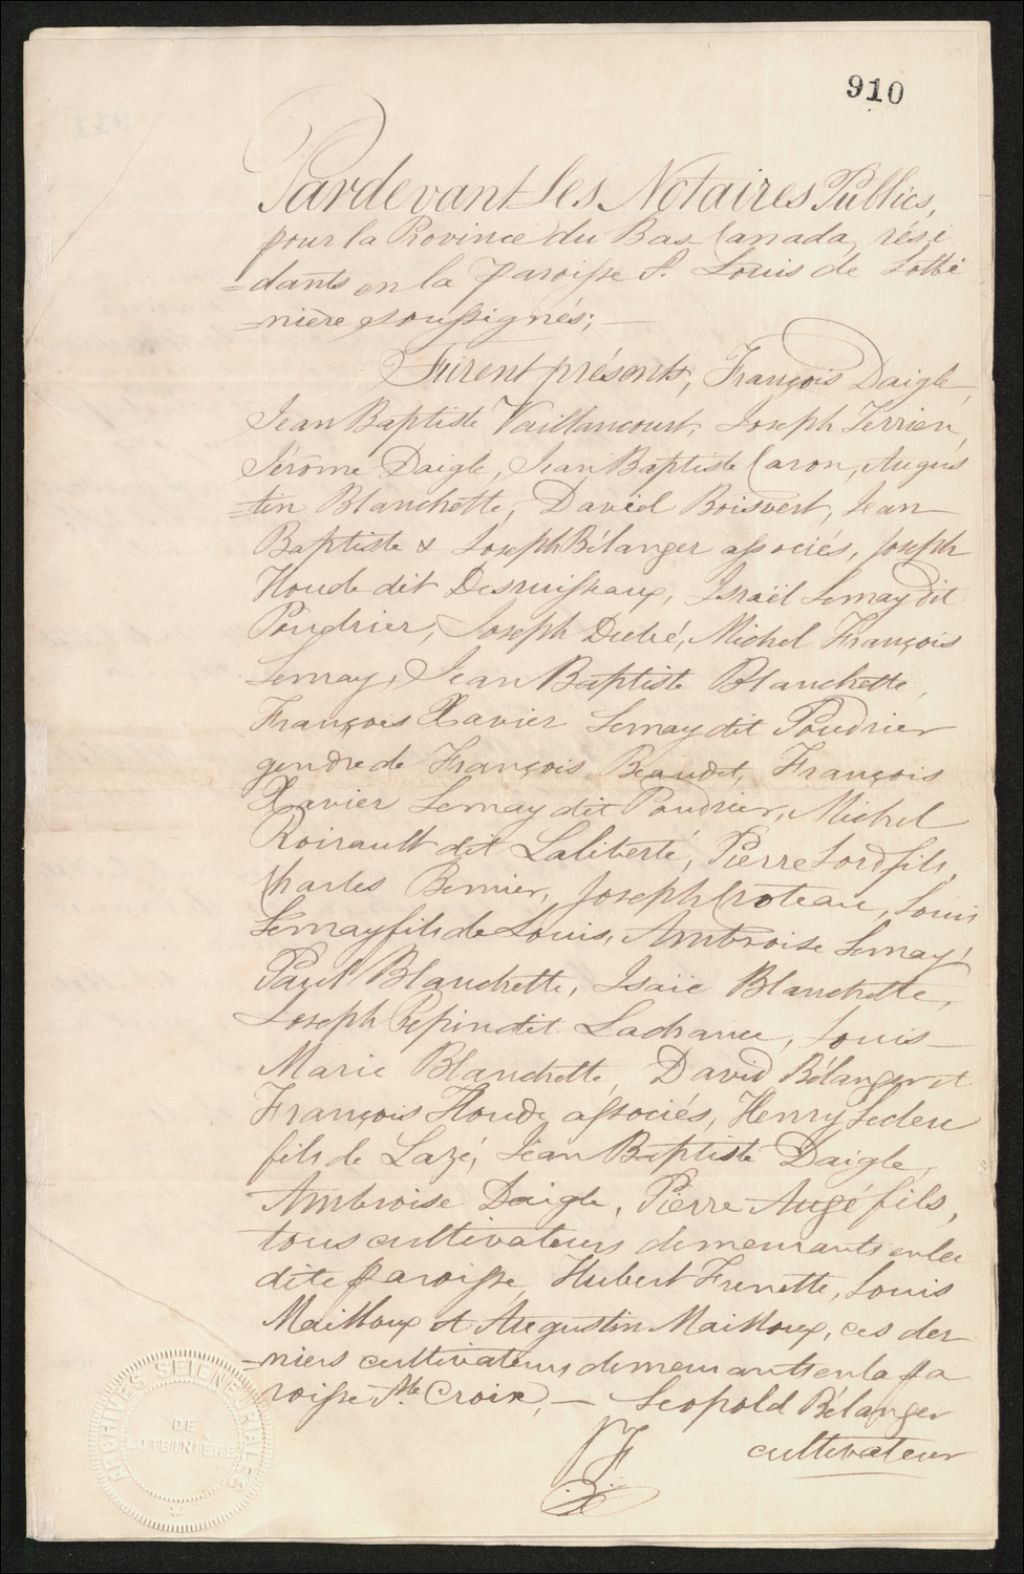 910
Pardevant Les Notaires Publics,
pour la Province du Bas Canada, rési
=dants en la paroisse St. Louis de Lotbi
=nière soussignés; —
Furent présents, François Daigle,
Jean Baptiste Vaillancourt, Joseph Terrien,
Jérôme Daigle, Jean Baptiste Caron, Augus
=tin Blanchette, David Boisvert, Jean
Baptiste & Joseph Bélanger associés, Joseph
Houde dit Desruisseaux, Israël Lemay dit
Poudrier, Joseph Dubé, Michel François
Lemay, Jean Baptiste Blanchette,
François Xavier Lemay dit Poudrier
gendre de François Beaudet, François
Xavier Lemay dit Poudrier, Michel
Roirault dit Laliberté, Pierre Lord fils,
Charles Bernier, Joseph Croteau, Louis
Lemay fils de Louis, Ambroise Lemay,
Paul Blanchette, Isaïe Blanchette,
Joseph Pepin dit Lachance, Louis —
Marie Blanchette, David Bélanger et
François Houde associés, Henry Leclerc
fils de Lazé, Jean Baptiste Daigle,
Ambroise Daigle, Pierre Augé fils,
tous cultivateurs demeurants en la
dite paroisse, Hubert Frenette, Louis
Mailloux et Augustin Mailloux, ces der
=niers cultivateurs demeurants en la pa
roisse Ste. Croix, — Leopold Bélanger
cultivateur
ARCHIVES SEIGNEURIALES
DE
LOTBINIÈRE